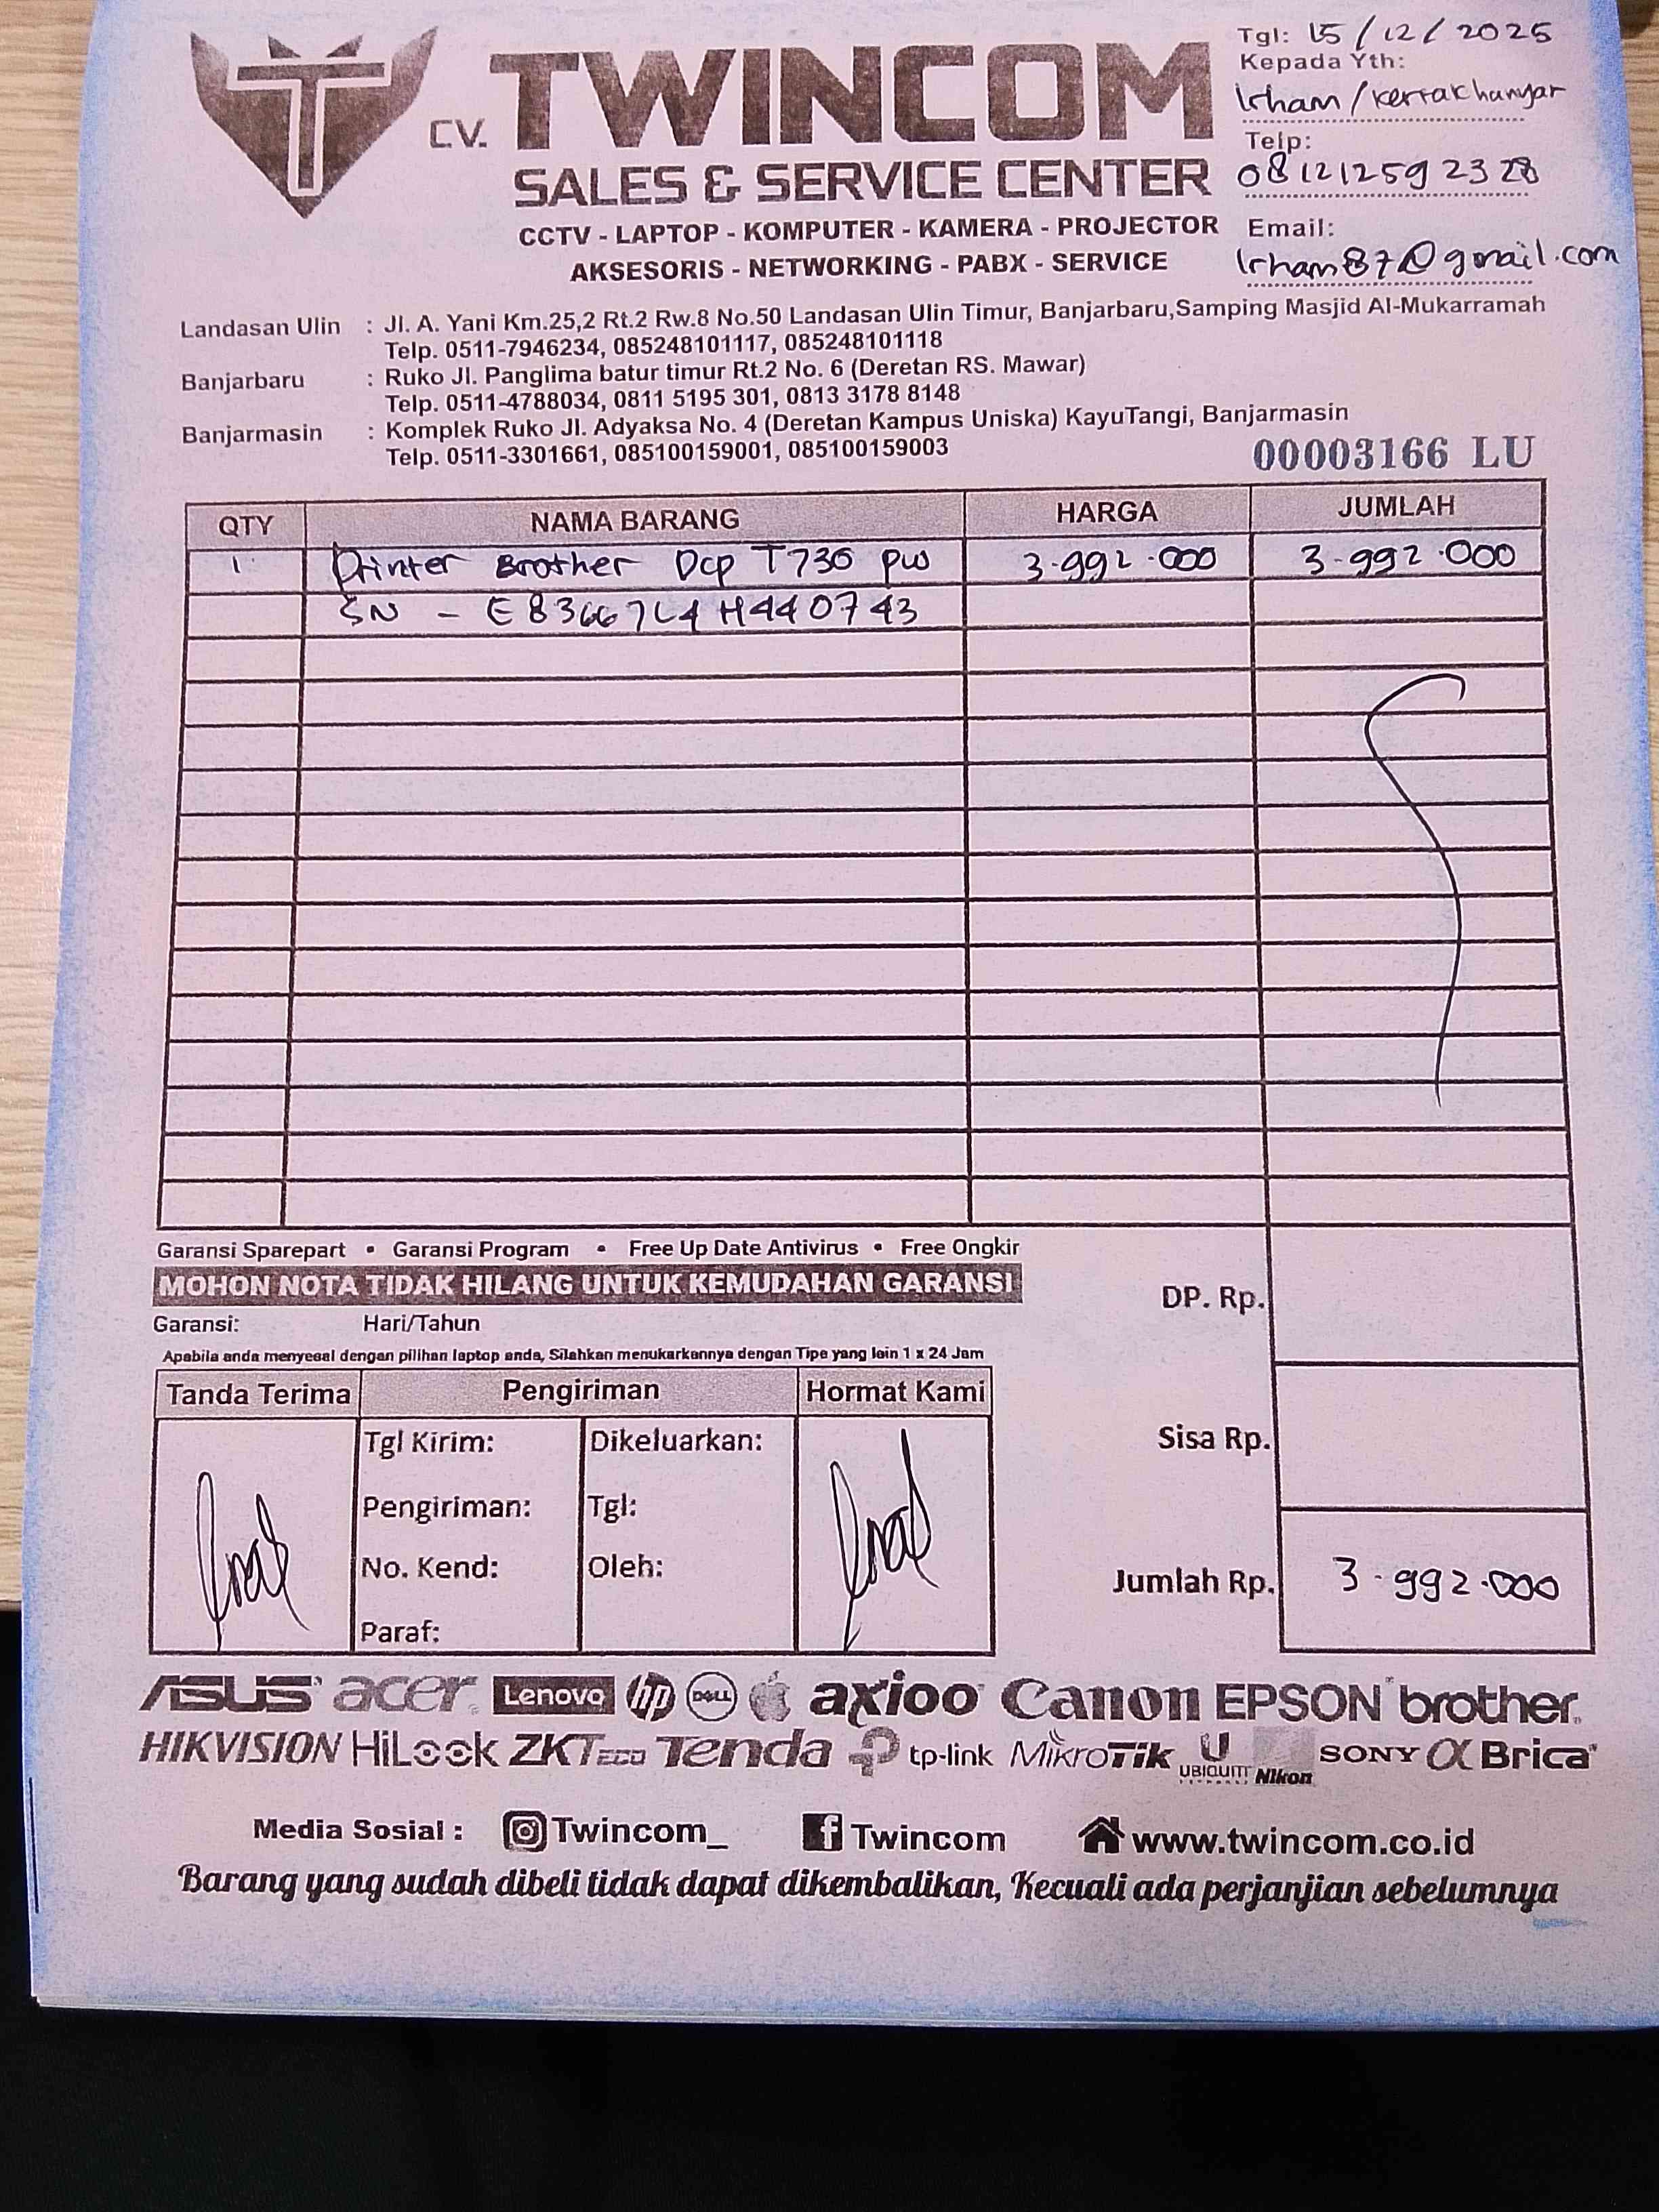 Tgl: 15/12/2025
Kepada Yth:
Irham/kertakhanyar
Telp:
081212592328
Email:
Irham87@gmail.com
CV. TWINCOM
SALES & SERVICE CENTER
CCTV - LAPTOP - KOMPUTER - KAMERA - PROJECTOR
AKSESORIS - NETWORKING - PABX - SERVICE
Landasan Ulin : Jl. A. Yani Km.25,2 Rt.2 Rw.8 No.50 Landasan Ulin Timur, Banjarbaru,Samping Masjid Al-Mukarramah
Telp. 0511-7946234, 085248101117, 085248101118
Banjarbaru : Ruko Jl. Panglima batur timur Rt.2 No. 6 (Deretan RS. Mawar)
Telp. 0511-4788034, 0811 5195 301, 0813 3178 8148
Banjarmasin : Komplek Ruko Jl. Adyaksa No. 4 (Deretan Kampus Uniska) KayuTangi, Banjarmasin
Telp. 0511-3301661, 085100159001, 085100159003
00003166 LU
QTY NAMA BARANG HARGA JUMLAH
1 Printer Brother Dcp T730 pw 3.992.000 3.992.000
SN - E83667L4H440743
Garansi Sparepart • Garansi Program • Free Up Date Antivirus • Free Ongkir
MOHON NOTA TIDAK HILANG UNTUK KEMUDAHAN GARANSI
Garansi: Hari/Tahun
Apabila anda menyesal dengan pilihan laptop anda, Silahkan menukarkannya dengan Tipe yang lain 1 x 24 Jam
DP. Rp.
Tanda Terima Pengiriman Hormat Kami
Tgl Kirim: Dikeluarkan:
Sisa Rp.
Pengiriman: Tgl:
No. Kend: Oleh:
Jumlah Rp. 3.992.000
Paraf:
ASUS acer Lenovo hp DELL axioo Canon EPSON brother
HIKVISION HiLook ZKTECO Tenda tp-link MikroTik U UBIQUITI Nikon SONY α Brica
Media Sosial : Twincom_ Twincom www.twincom.co.id
Barang yang sudah dibeli tidak dapat dikembalikan, Kecuali ada perjanjian sebelumnya